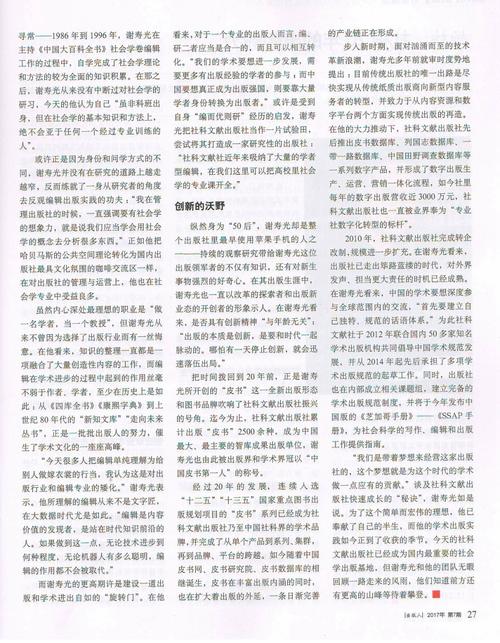 寻常——1986 年到 1996 年，谢寿光在
主持《中国大百科全书》社会学卷编辑
工作的过程中，自学完成了社会学理论
和方法的较为全面的知识积累。在那之
后，谢寿光从来没有中断过对社会学的
研习，今天的他认为自己“虽非科班出
身，但在社会学的基本知识和方法上，
绝不会亚于任何一个经过专业训练的
人”。
或许正是因为身份和同学方式的不
同，谢寿光并没有在研究的道路上越走
越窄，反而练就了一身从研究者的角度
去反观编辑出版实践的功夫：“我在管
理出版社的时候，一直强调要有社会学
的想象力，就是说我们应当学会用社会
学的概念去分析很多东西。”正如他把
哈贝马斯的公共空间理论转化为国内出
版社最具文化氛围的咖啡交流区一样，
在对出版社的管理与运营上，他也在社
会学专业中受益良多。
虽然内心深处最理想的职业是“做
一名学者，当一个教授”，但谢寿光从
来不曾因为选择了出版行业而有一丝悔
意。在他看来，知识的整理一直都是一
项融合了大量创造性内容的工作，而编
辑在学术进步的过程中起到的作用丝毫
不弱于作者、学者，至少在历史上是如
此；从《四库全书》《康熙字典》到上
世纪 80 年代的“新知文库”“走向未来
丛书”，正是一批批出版人的努力，催
生了学术文化的一座座高峰。
“今天很多人把编辑单纯理解为给
别人做嫁衣裳的行当，我认为这是对出
版行业和编辑专业的矮化。”谢寿光表
示。他所理解的编辑从来不是文字匠，
在大数据时代尤是如此。“编辑是内容
价值的发现者，是站在时代知识前沿的
人。如果做到这一点，无论技术进步到
何种程度，无论机器人有多么聪明，编
辑的作用都不会被取代。”
而谢寿光的更高期许是建设一道出
版和学术进出自如的“旋转门”。在他
看来，对于一个专业的出版人而言，编、
研二者应当是合一的，而且可以相互转
化。“我们的学术要想进一步发展，需
要更多有出版经验的学者的参与；而中
国要想真正成为出版强国，则要靠大量
学者身份转换为出版者。”或许是受到
自身“编而优则研”经历的启发，谢寿
光把社科文献出版社当作一片试验田，
尝试将其打造成一家研究性的出版社：
“社科文献社近年来吸纳了大量的学者
型编辑，在我们这里可以把高校里社会
学的专业课开全。”
创新的沃野
纵然身为“50 后”，谢寿光却是整
个出版社里最早使用苹果手机的人之一
——持续的观察研究带给谢寿光这位
出版领军者的不仅有知识，还有对新生
事物强烈的好奇心。在其出版生涯中，
谢寿光也一直以改革的探索者和出版新
业态的开创者的形象示人。在谢寿光看
来，是否具有创新精神“与年龄无关”：
“出版的本质是创新，是要和时代一起
脉动的。哪怕有一天停止创新，就会迅
速落伍出局。”
把时间拨回到 20 年前，正是谢寿
光所开创的“皮书”这一全新出版形态
和图书品牌吹响了社科文献出版社振兴
的号角。迄今为止，社科文献出版社累
计出版“皮书”2500 余种，成为中国
最大、最主要的智库成果出版单位，谢
寿光也由此被出版界和学术界冠以“中
国皮书第一人”的称号。
经过 20 年的发展，连续入选
“十二五”“十三五”国家重点图书出
版规划项目的“皮书”系列已经成为社
科文献出版社乃至中国社科界的学术品
牌，并完成了从单个产品到系列、集群，
再到品牌、平台的跨越。如今随着中国
皮书网、皮书研究院、皮书数据库的相
继诞生，皮书在丰富出版内涵的同时，
也在扩大着出版的外延，一条日渐完善
的产业链正在形成。
步入新时期，面对汹涌而至的技术
革新浪潮，谢寿光多年前就审时度势地
提出：目前传统出版社的唯一出路是尽
快实现从传统纸质出版商向新型内容服
务者的转型，并致力于从内容资源和数
字平台两个方面实现传统出版的再造。
在他的大力推动下，社科文献出版社先
后推出皮书数据库、列国志数据库、一
带一路数据库、中国田野调查数据库等
一系列数字产品，并形成了数字出版生
产、运营、营销一体化流程，如今社里
每年的数字出版营收近 3000 万元，社
科文献出版社也一直被业界奉为“专业
社数字化转型的标杆”。
2010 年，社科文献出版社完成转企
改制，规模进一步扩充。在谢寿光看来，
出版社已走出筚路蓝缕的时代，对外界
发声、担当更大责任的时机已经成熟。
在谢寿光看来，中国的学术要想深度参
与全球范围内的交流，“首先要建立自
己独特、规范的话语体系。”为此社科
文献社于 2012 年联合国内 50 多家知名
学术出版机构共同倡导中国学术规范发
展，并从 2014 年起先后承担了多项学
术出版规范的起草工作。同时，出版社
也在内部成立相关课题组，建立完备的
学术出版规范制度，并将于今年发布中
国版的《芝加哥手册》——《SSAP 手
册》，为社会科学的写作、编辑和出版
工作提供指南。
“我们是带着梦想来经营这家出版
社的，这个梦想就是为这个时代的学术
做一点应有的贡献。”谈及社科文献出
版社快速成长的“秘诀”，谢寿光如是
说。为了这个简单而宏伟的理想，他已
奉献了自己的半生，而他的学术出版实
践如今正到了收获的季节。今天的社科
文献出版社已经成为国内最重要的社会
学出版基地，但谢寿光和他的团队无暇
回顾一路走来的风雨，他们知道前方还
有更高的山峰等待着攀登。
[出版人] 2017年 第7期 27